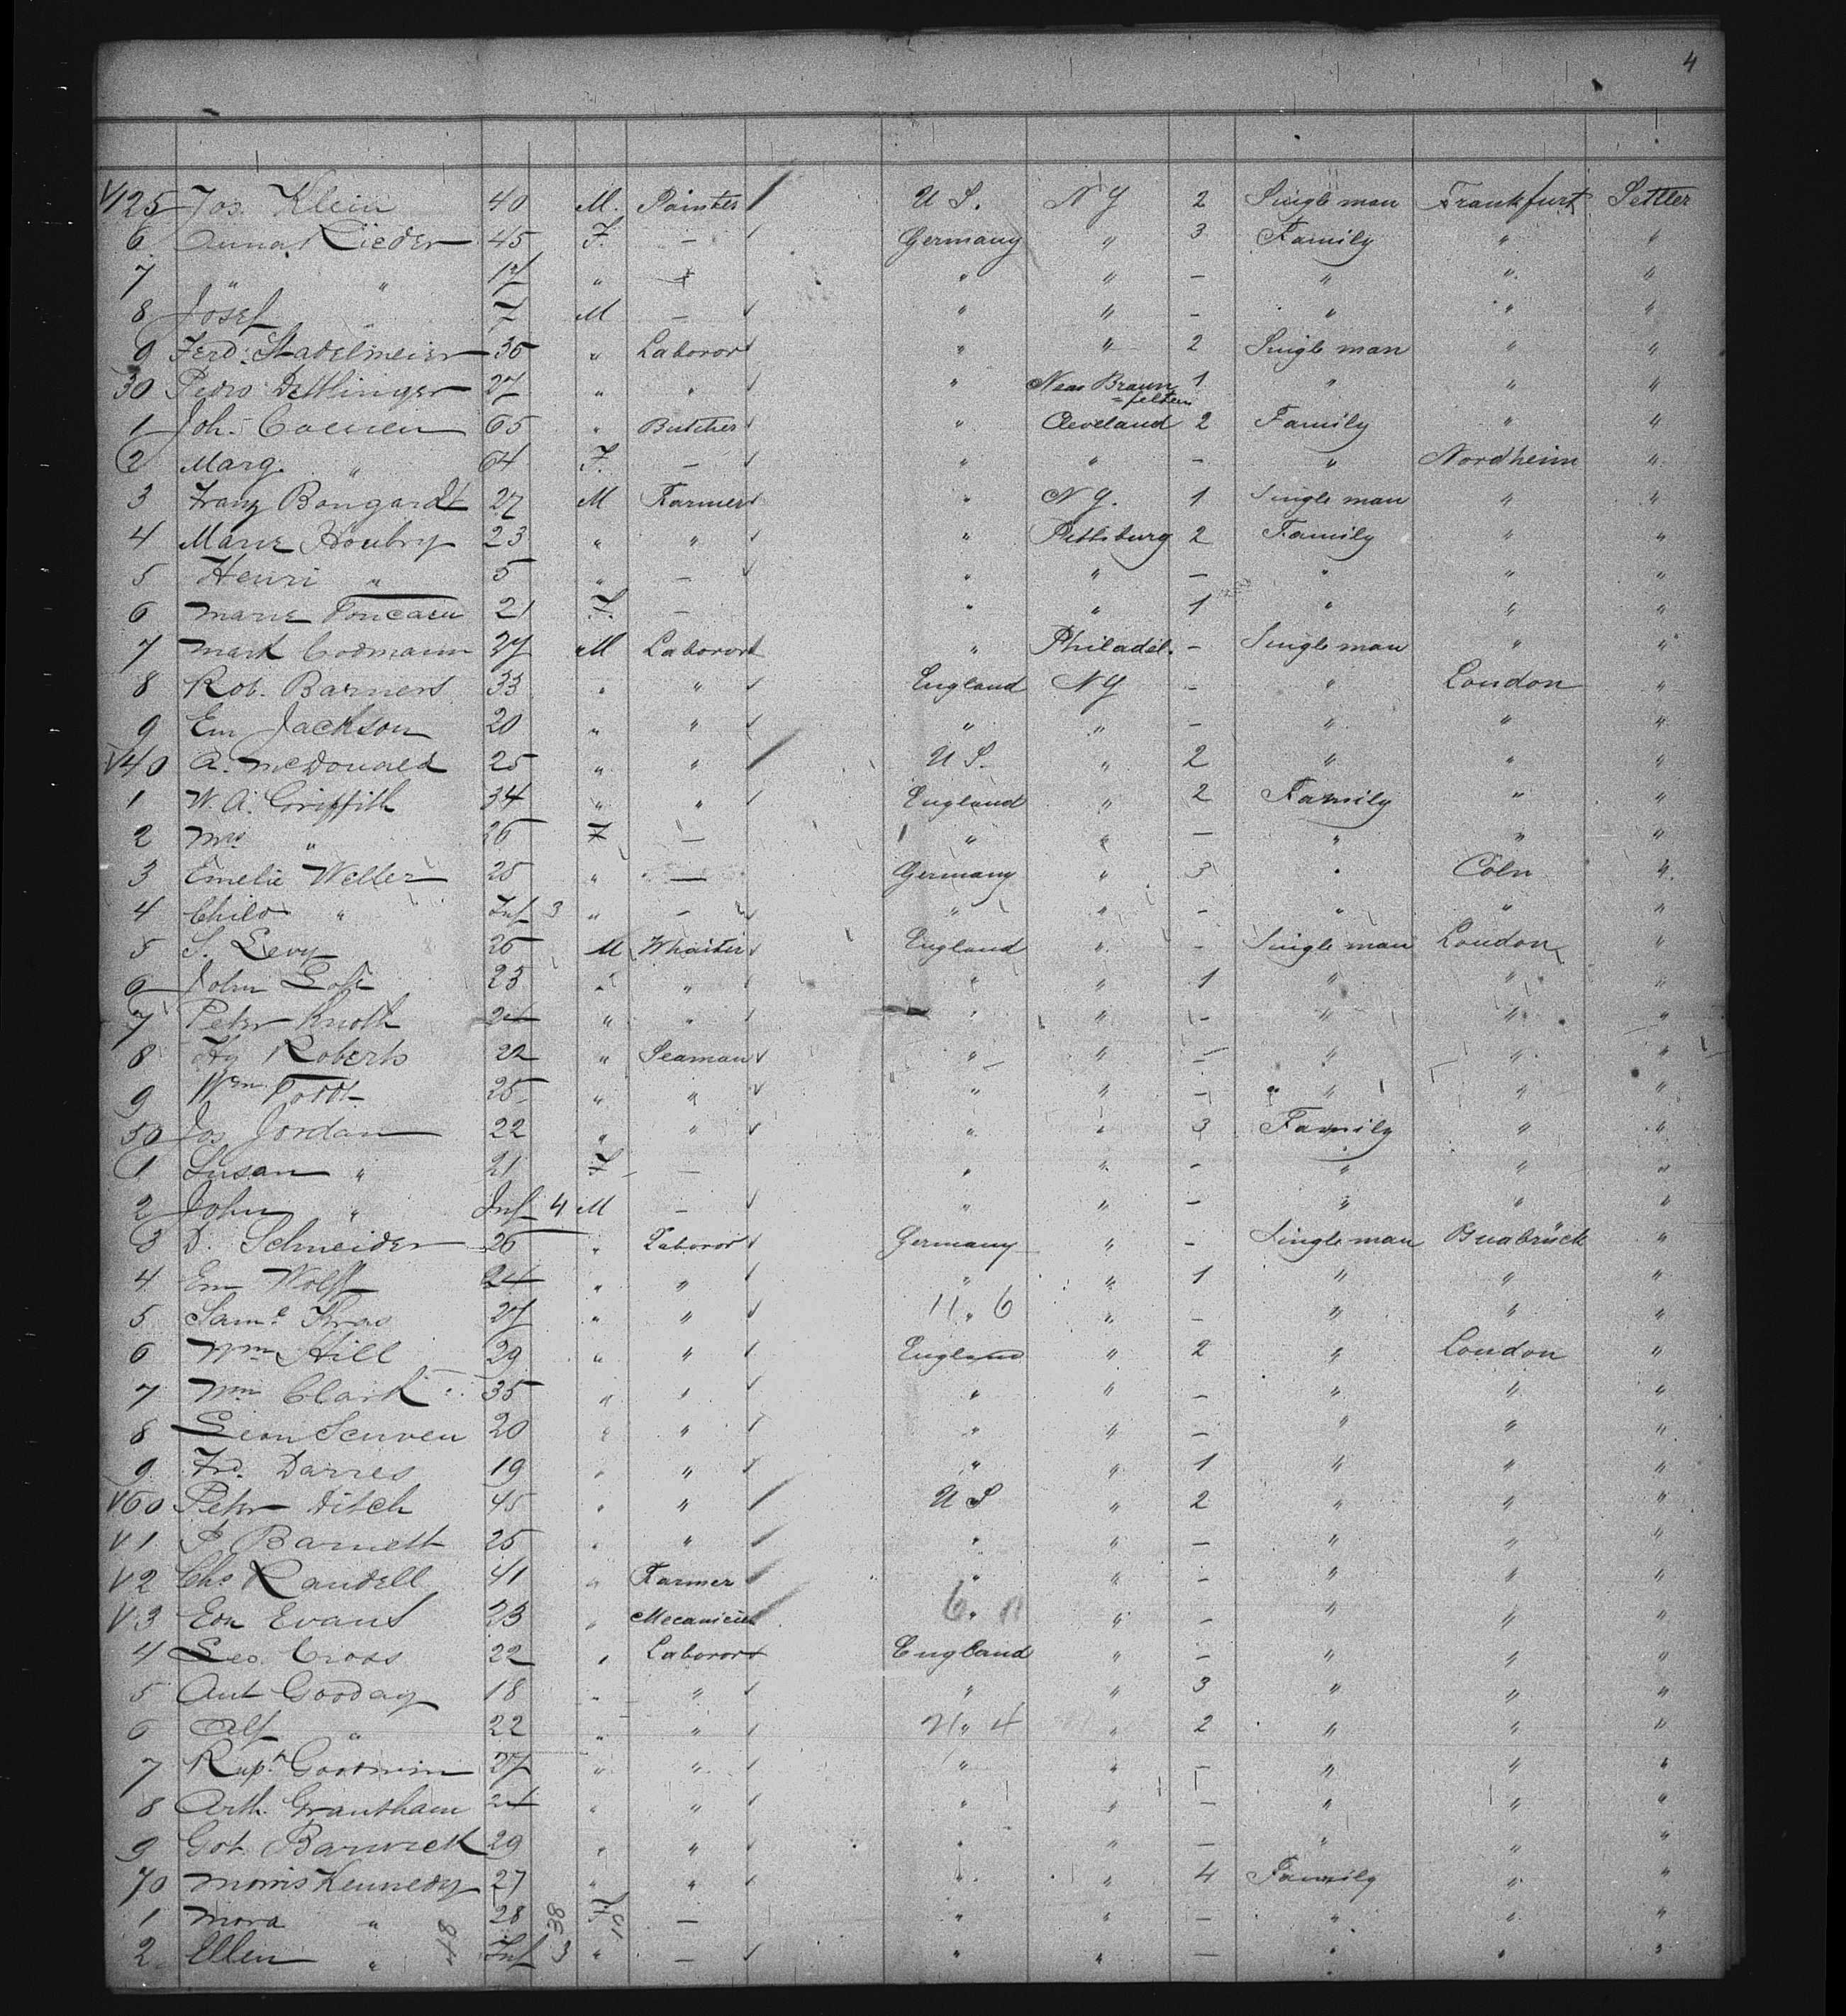 4
√125 Jos. Klein 40 M. Painter U S. N Y 2 Single man Frankfurt Settler
6 Anna Rieder 45 F. — Germany " 3 Family " "
7 " " 17 " " " — " " "
8 Josef " 7 M — " " — " " "
9 Ferd. Stadelmeier 36 " Laboror " " 2 Single man " "
30 Pedro Dettlinger 27 " " " Neas Braun =felten 1 " " "
1 Joh. 65 " Butcher " Cleveland 2 Family " "
2 Marg. " 64 F. — " " — " Nordheim "
3 Franz Bongardt 27 M Farmer " N Y. 1 Single man " "
4 Marie Houbry 23 " " " Pittsburg 2 Family " "
5 Henri " 5 " — " " — " " "
6 Marie 21 F. — " " 1 " " "
7 Mark Codmann 37 M Laboror " Philadel. — Single man " "
8 Rob. Barners 33 " " England N Y — " London "
9 Em Jackson 20 " " " " — " " "
√40 A. McDonald 25 " " U S. " 2 " " "
1 W. A. Griffith 34 " " England " 2 Family " "
2 Mrs " 26 F — " " — " " "
3 Emelie Weller 25 " — Germany " 3 " Cöln "
4 Child " Inf 3 " — " " — " " "
5 S. Levy 26 M Whaiter England " — Single man London "
6 John 23 " " " " 1 " " "
7 Peter Knoth 24 " " " " — " " "
8 Hy Roberts 22 " Seaman " " — " " "
9 Wm 25 " " " " — " " "
50 Jos Jordan 22 " " " " 3 Family " "
1 Susan " 21 F — " " — " " "
2 John " Inf 4 M — " " — " " "
3 D. Schneider 26 " Laboror Germany " — Single man Osnabrück "
4 Em Wolff 24 " " " " 1 " " "
5 Saml Kras 27 " " " 11 6 " — " " "
6 Wm Hill 29 " " England " 2 " London "
7 Wm Clark 35 " " " " — " " "
8 Leon 20 " " " " — " " "
9 Frd. Darres 19 " " " " 1 " " "
√60 Peter Ditch 45 " " U S " 2 " " "
√1 Barnett 25 " " " " — " " "
√2 Chs Randell 41 " Farmer " " — " " "
√3 Edn Evans 23 " Mecanicien " 6 11 " — " " "
4 Geo. Cross 22 " Laboror England " — " " "
5 Ant Gooday 18 " " " " 3 " " "
6 Alf " 22 " " " 4 " 2 " " "
7 Rupt Goodwin 27 " " " " — " " "
8 Arth. Grantham 24 " " " " — " " "
9 Got Barwick 29 " " " " — " " "
70 Morris Kennedy 27 " " " " 4 Family " "
1 Mora " 28 F — " " — " " "
2 Ellen " Inf 3 " — " " — " " "
48 38 10